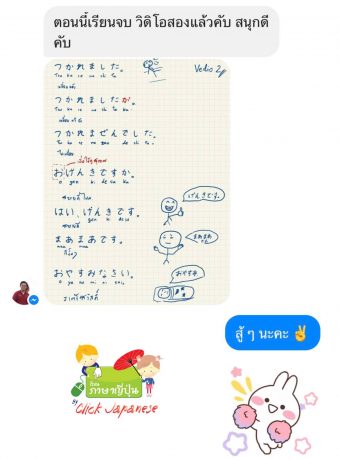 ตอนนี้เรียนจบ วิดิโอสองแล้วคับ สนุกดี
คับ
つかれました。
Tsu ka re ma shi ta
Vedio 2
つかれましたか。
Tsu ka re ma shi ta ka
つかれませんでした。
Tsu ka re ma se n de shi ta
おげんきですか。
o gen ki de su ka
สบายดีไหม
げんきです。
はい、げんきです。
hai gen ki de su
สบายดี
まあまあ
まあまあです。
おやすみなさい。
o ya su mi na sai
おやすみ
ราตรีสวัสดิ์
สู้ ๆ นะคะ ✌
เรียน
ภาษาญี่ปุ่น
By
Click Japanese